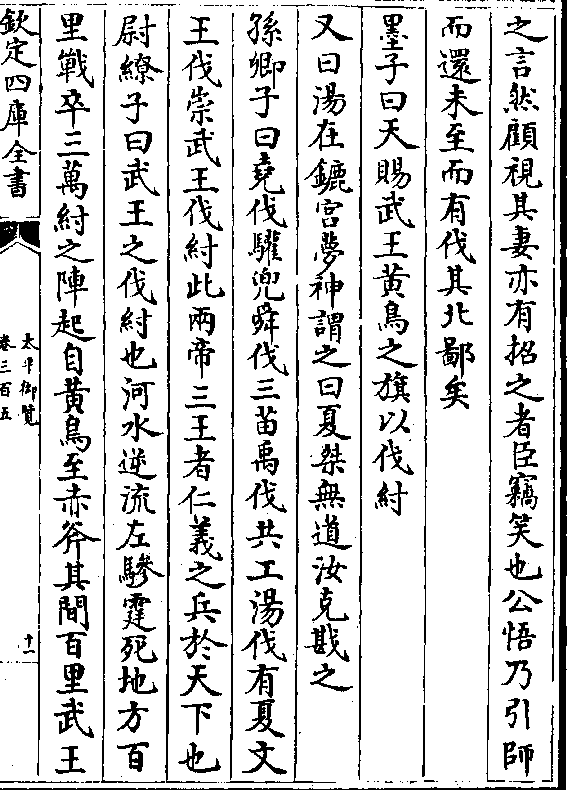 之言然顧視其妻亦有招之者臣竊笑也公悟乃引師
而還未至而有伐其北鄙矣
墨子曰天賜武王黃鳥之旗以伐紂
又曰湯在鑣宮夢神謂之曰夏桀無道汝克戡之
孫卿子曰堯伐驩兜舜伐三苗禹伐共工湯伐有夏文
王伐崇武王伐紂此兩帝三王者仁義之兵於天下也
尉繚子曰武王之伐紂也河水逆流左驂霆死地方百
里戰卒三萬紂之陣起自黃鳥至赤斧其間百里武王
欽定四庫全書
太平御覽
卷三百五
十一